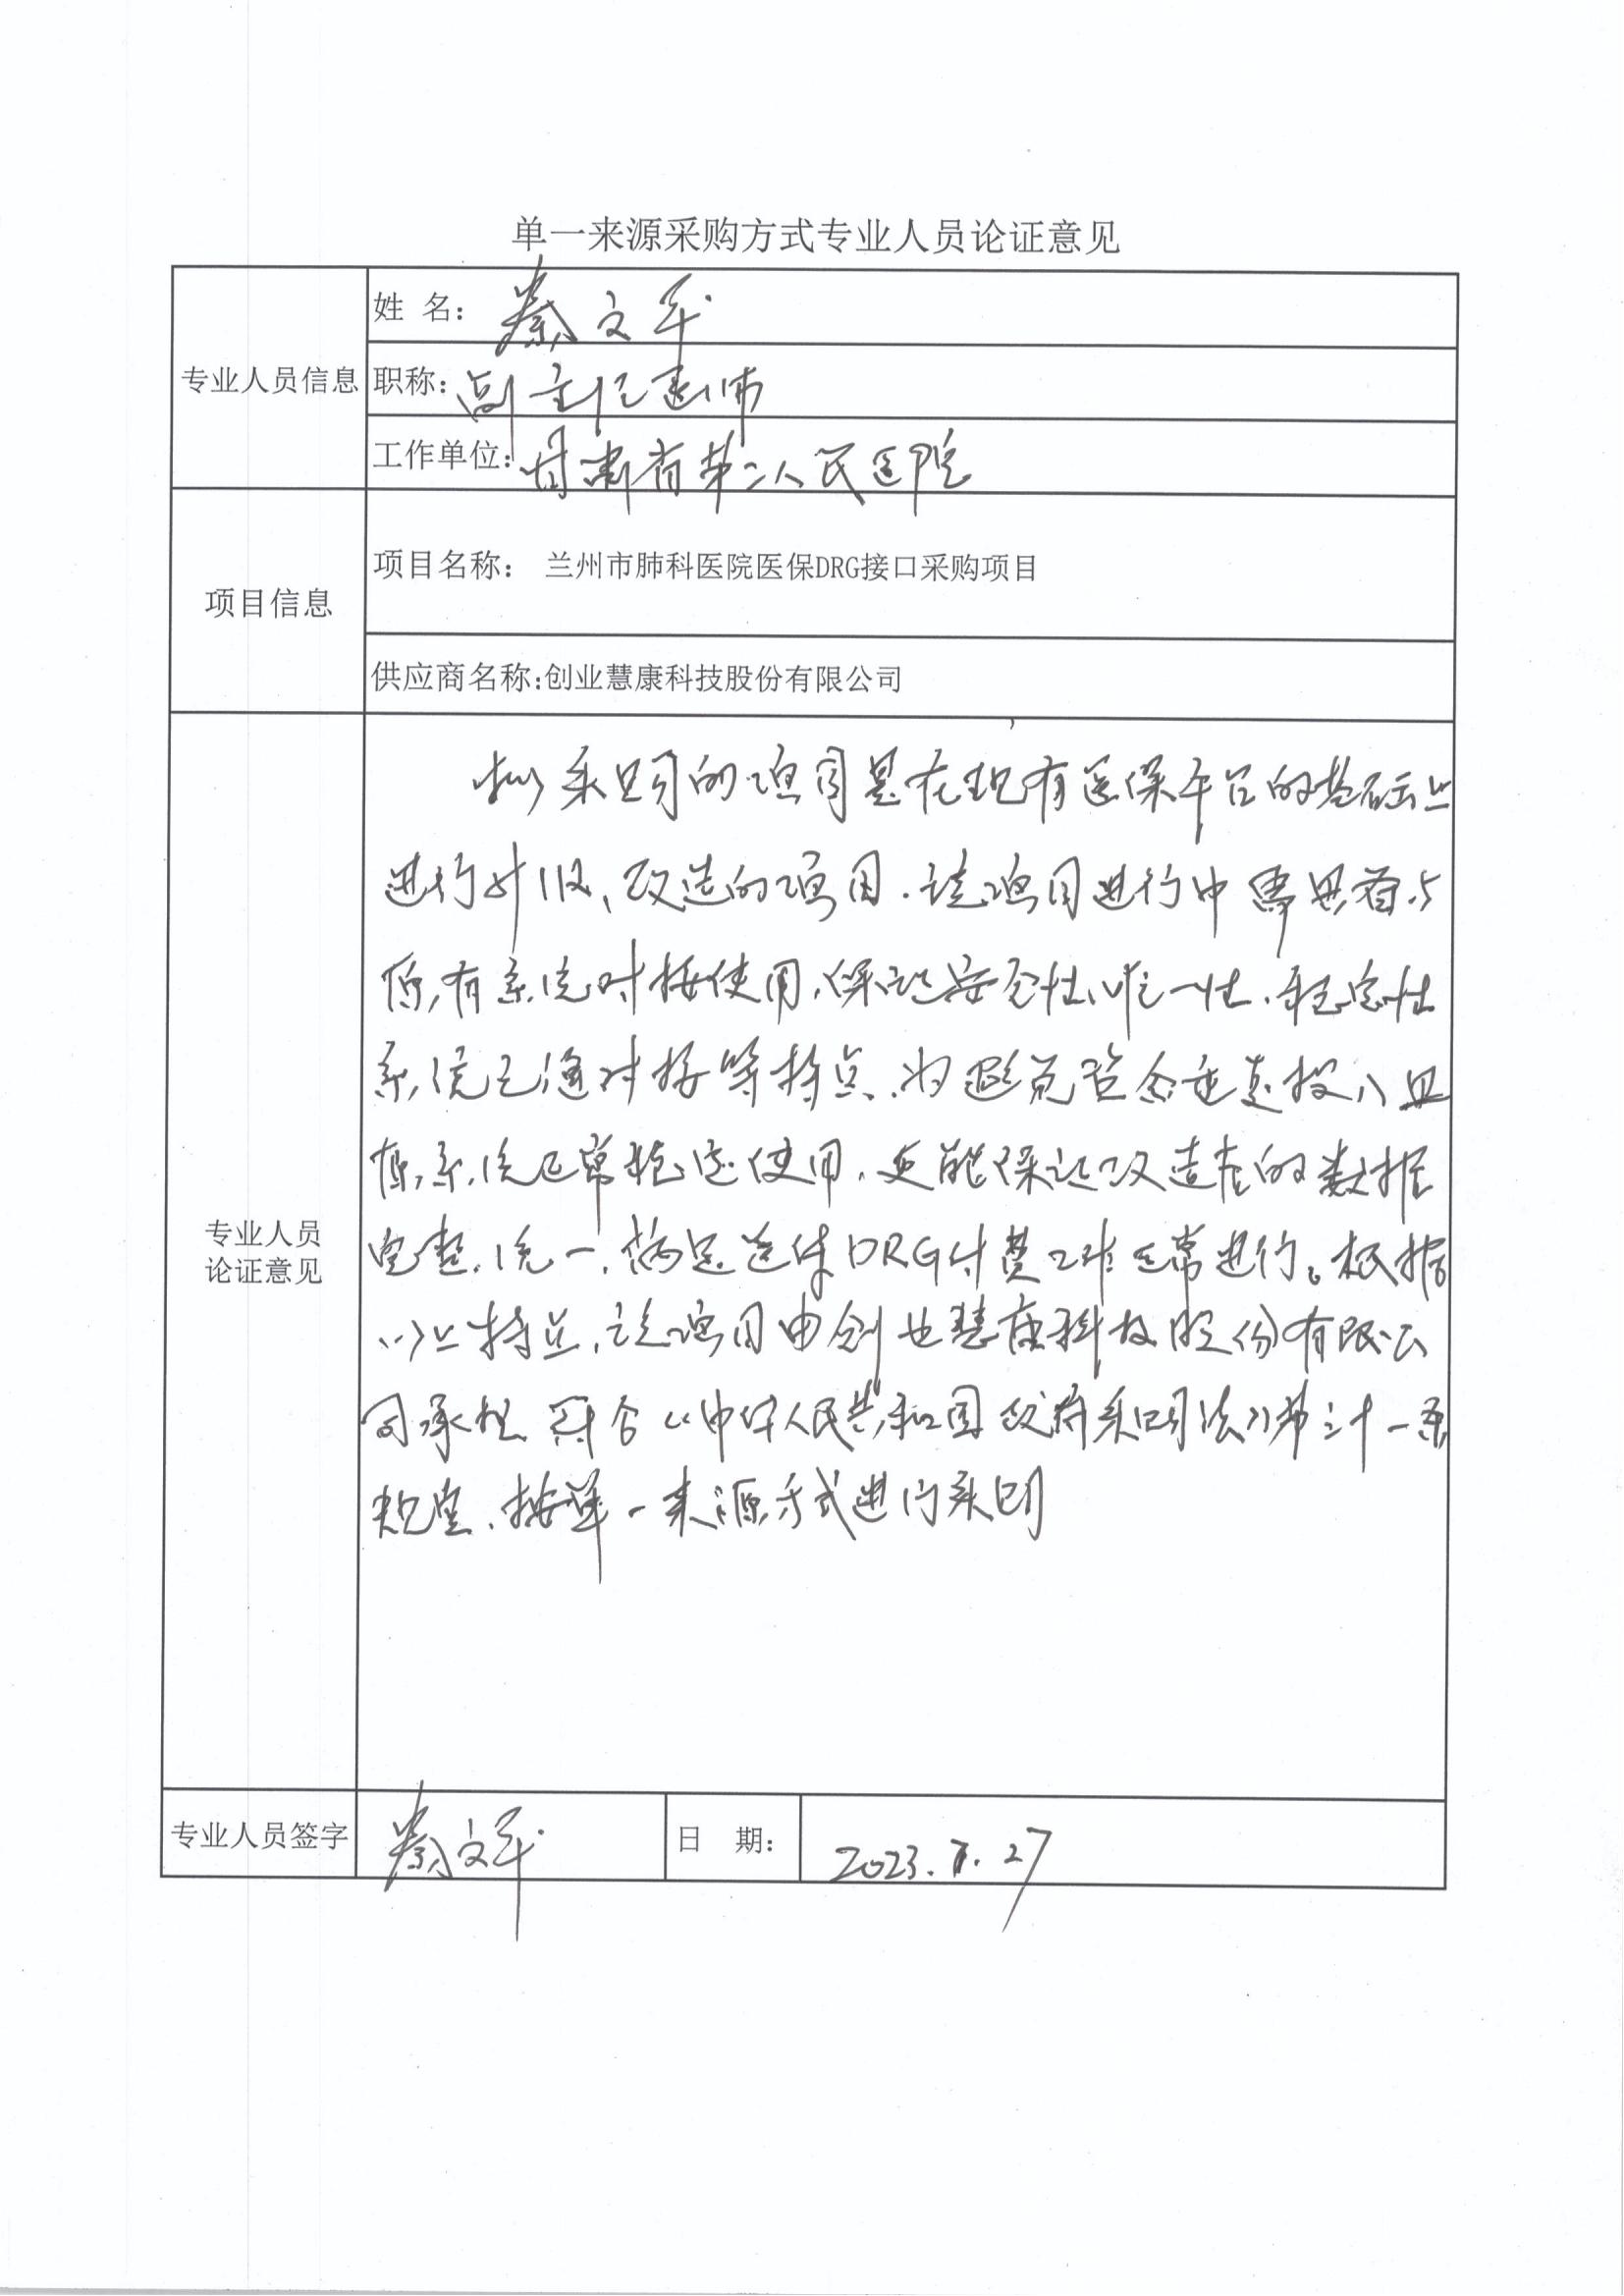 单一来源采购方式专业人员论证意见
专业人员信息
姓 名: 秦文军
职称: 副主任医师
工作单位: 甘肃省第二人民医院
项目信息
项目名称: 兰州市肺科医院医保DRG接口采购项目
供应商名称:创业慧康科技股份有限公司
专业人员
论证意见
拟采购的项目是在现有医保平台的基础上
进行升级、改造的项目.该项目进行中需具备与
原有系统对接使用,保证安全性、唯一性、稳定性
系统互通对接等特点.为避免资金重复投入且
原系统正常稳定使用,更能保证改造后的数据
完整,统一,满足医保DRG付费工作正常进行。根据
以上特点,该项目由创业慧康科技股份有限公
司承担 符合《中华人民共和国政府采购法》第三十一条
规定,按单一来源方式进行采购
专业人员签字 秦文军 日 期: 2023.7.27